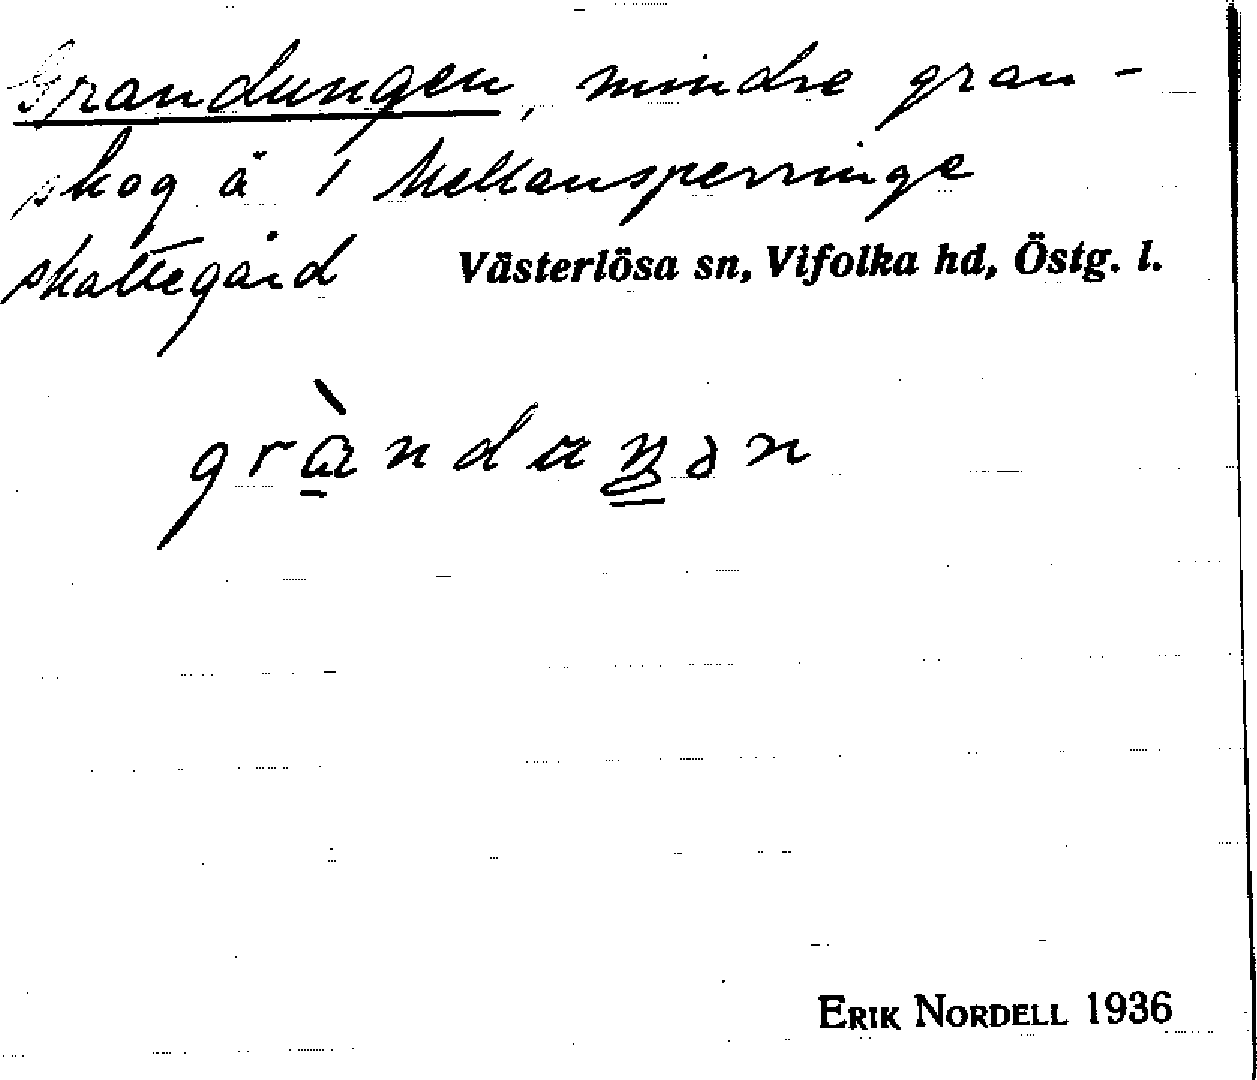 Grandungen, mindre gran-
skog å 1 Mellansperringe
skattegård Västerlösa sn, Vifolka hd, Östg. l.
ERIK NORDELL 1936